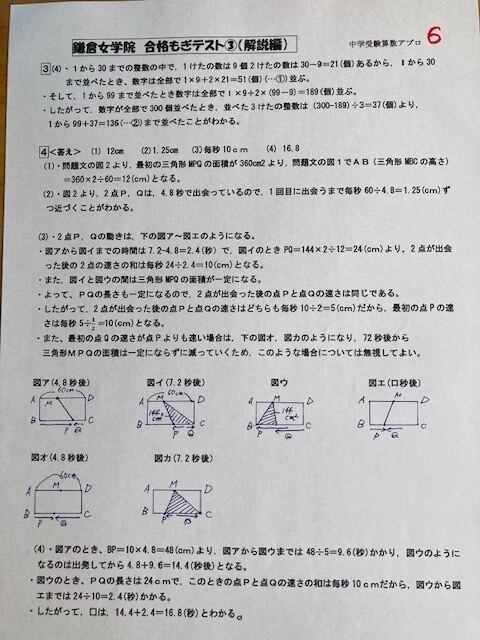 鎌倉女学院 合格もぎテスト③(解説編)
中学受験算数アプロ 6
3(4)・1から30までの整数の中で，1けたの数は9個2けたの数は30－9＝21(個)あるから，1から30
まで並べたとき，数字は全部で1×9＋2×21＝51(個)(…①)並ぶ。
・そして，1から99まで並べたとき数字は全部で1×9＋2×(99－9)＝189(個)並ぶ。
・したがって，数字が全部で300個並べたとき，並べた3けたの整数は(300-189)÷3＝37(個)より，
1から99＋37＝136(…②)まで並べたことがわかる。
4＜答え＞ (1) 12cm (2)1.25cm (3)毎秒10cm (4) 16.8
(1)・問題文の図2より，最初の三角形MPQの面積が360cm2より，問題文の図1でAB(三角形MBCの高さ)
＝360×2÷60＝12(cm)となる。
(2)・図2より，2点P，Qは，4.8秒で出会っているので，1回目に出会うまで毎秒60÷4.8＝1.25(cm)ず
つ近づくことがわかる。
(3)・2点P，Qの動きは，下の図ア～図エのようになる。
・図アから図イまでの時間は7.2-4.8＝2.4(秒)で，図イのときPQ＝144×2÷12＝24(cm)より，2点が出会
った後の2点の速さの和は毎秒24÷2.4＝10(cm)となる。
・また，図イと図ウの間は三角形MPQの面積が一定になる。
・よって，PQの長さも一定になるので，2点が出会った後の点Pと点Qの速さは同じである。
・したがって，2点が出会った後の点Pと点Qの速さはどちらも毎秒10÷2＝5(cm)だから，最初の点Pの速
さは毎秒5÷1/2＝10(cm)となる。
・また，最初の点Qの速さが点Pよりも速い場合は，下の図オ，図カのようになり，72秒後から
三角形MPQの面積は一定にならずに減っていくため，このような場合については無視してよい。
図ア(4.8秒後) 図イ(7.2秒後) 図ウ 図エ(口秒後)
60cm 60cm
A M D A M D A M D A M D
144cm² 144cm²
B P Q C B P Q C B P Q C B P Q C
図オ(4.8秒後) 図カ(7.2秒後)
60cm
A M D A M D
B P Q C B P Q C
(4)・図アのとき，BP＝10×4.8＝48(cm)より，図アから図ウまでは48÷5＝9.6(秒)かかり，図ウのように
なるのは出発してから4.8＋9.6＝14.4(秒後)となる。
・図ウのとき，PQの長さは24cmで，このときの点Pと点Qの速さの和は毎秒10cmだから，図ウから図
エまでは24÷10＝2.4(秒)かかる。
・したがって，口は，14.4＋2.4＝16.8(秒)とわかる。